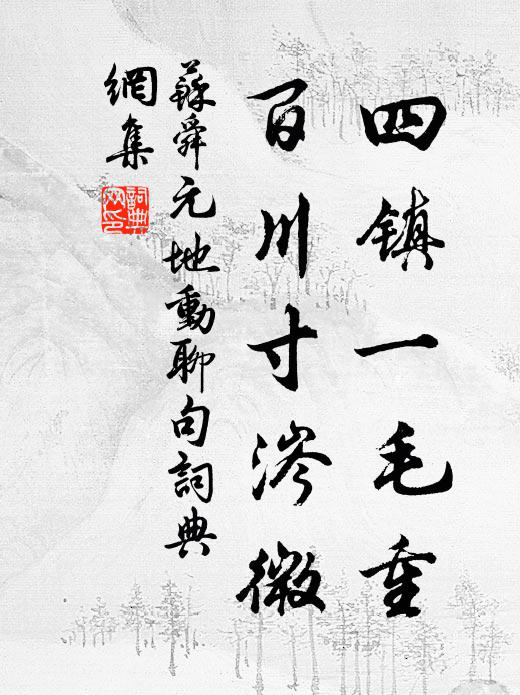 四镇一毛重
百川寸涔微
蘇舜元地動聊句詞典
網集
詞典
网印